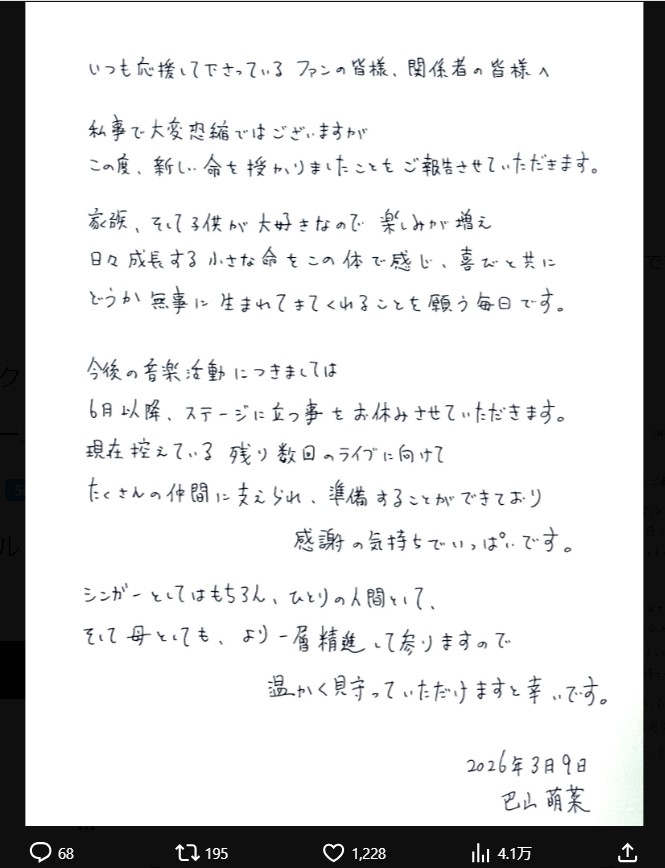 いつも応援して下さっている ファンの皆様、関係者の皆様へ
私事で大変恐縮ではございますが
この度、新しい命を授かりましたことをご報告させていただきます。
家族、そして子供が大好きなので 楽しみが増え
日々成長する小さな命をこの体で感じ、喜びと共に
どうか無事に生まれてきてくれることを願う毎日です。
今後の音楽活動につきましては
6月以降、ステージに立つ事をお休みさせていただきます。
現在控えている 残り数回のライブに向けて
たくさんの仲間に支えられ、準備することができており
感謝の気持ちでいっぱいです。
シンガーとしてはもちろん、ひとりの人間として、
そして母としても、より一層精進して参りますので
温かく見守っていただけますと幸いです。
2026年3月9日
巴山萌菜
68 195 1,228 4.1万